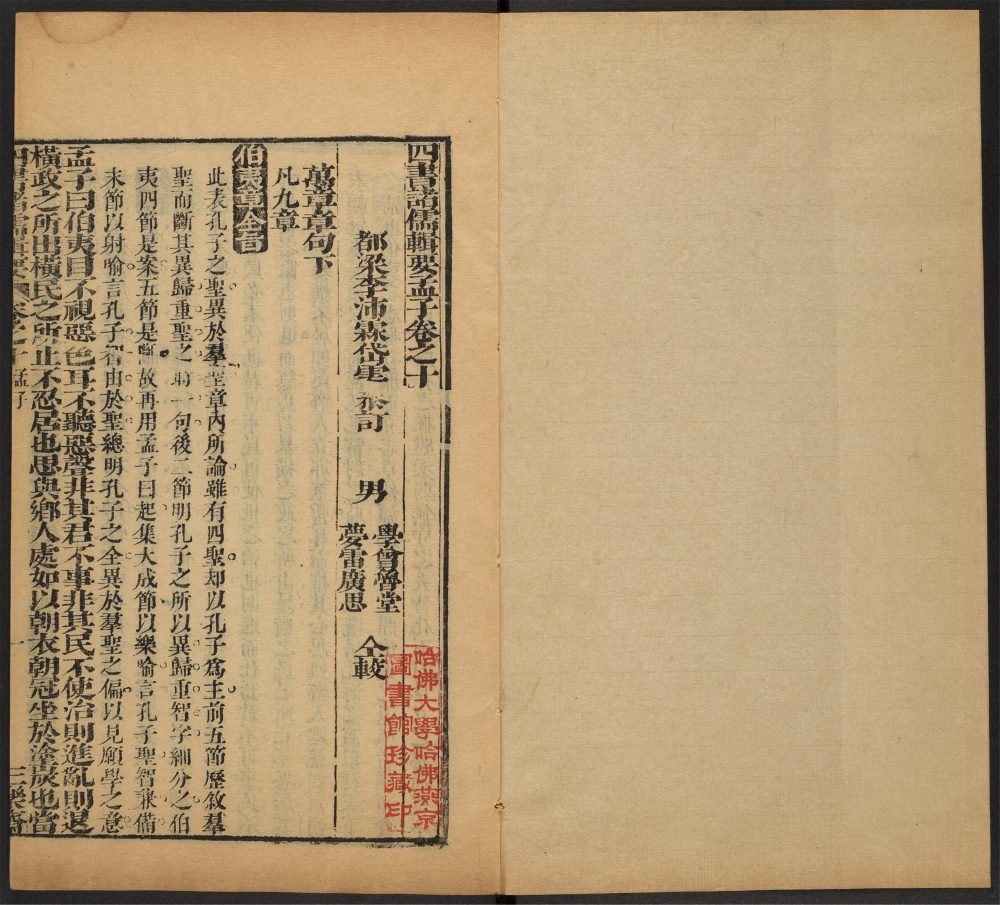 四書諸儒輯要孟子卷之十
都梁李沛霖岱雲叅訂
男
學曾魯堂
夢雷廣思
仝較
萬章章句下
凡九章
伯夷章全旨
此表孔子之聖異於羣聖章內所論雖有四聖却以孔子爲主前五節歷敘羣
聖而斷其異歸重聖之時一句後二節明孔子之所以異歸重智字細分之伯
夷四節是案五節是斷故再用孟子曰起集大成節以樂喻言孔子聖智兼備
末節以射喻言孔子智由於聖總明孔子之全異於羣聖之偏以見願學之意
孟子曰伯夷目不視惡色耳不聽惡聲非其君不事非其民不使治則進亂則退
橫政之所出橫民之所止不忍居也思與鄉人處如以朝衣朝冠坐於塗炭也當
四書諸儒輯要 卷之十孟子 一 三樂齋
哈佛大學哈佛燕京
圖書館珍藏印